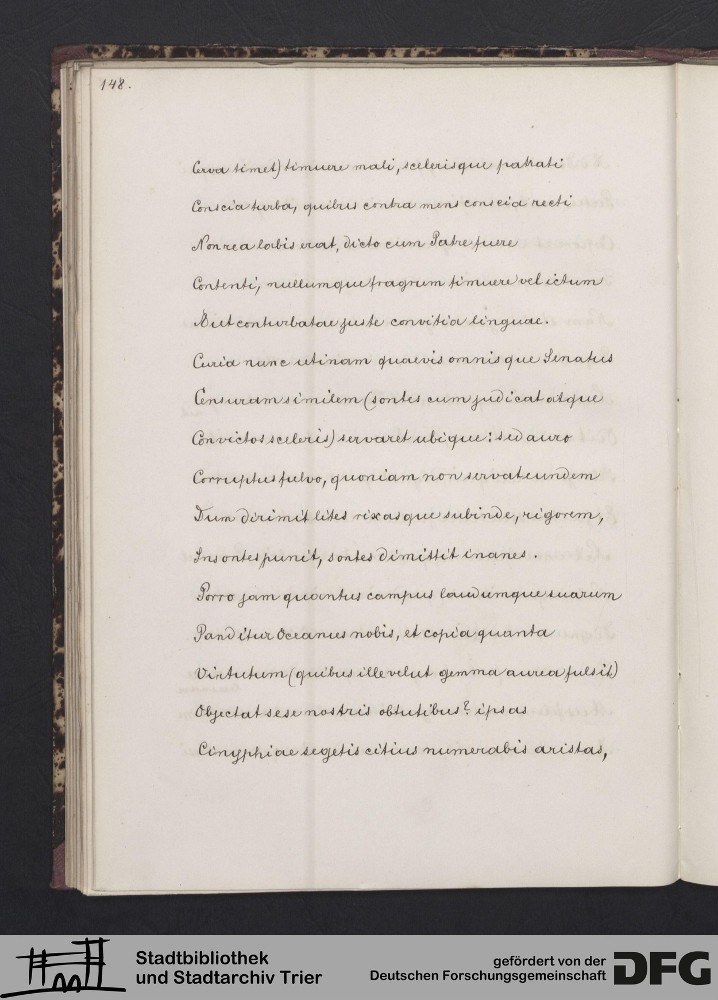 148.
Cerva timet) timuere mali, scelerisque patrati
Conscia turba, quibus contra mens conscia recti
Non rea labis erat, dicto cum Patre fuere
Contenti, nullumque fragrum timuere vel ictum
Aut conturbatae juste convitia linguae.
Curia nunc utinam quaevis omnisque Senatus
Censuram similem (sontes cum judicat atque
Convictos sceleris) servaret ubique: sed auro
Corruptus fulvo, quoniam non servat eundem
Dum dirimit lites rixasque subinde, rigorem,
Insontes punit, sontes dimittit inanes.
Porro jam quantus campus laudumque suarum
Panditur Oceanus nobis, et copia quanta
Virtutum (quibus ille velut gemma aurea fulsit)
Objectat sese nostris obtutibus? ipsas
Cinyphiae segetis citius numerabis aristas,
Stadtbibliothek
und Stadtarchiv Trier
gefördert von der
Deutschen Forschungsgemeinschaft
DFG